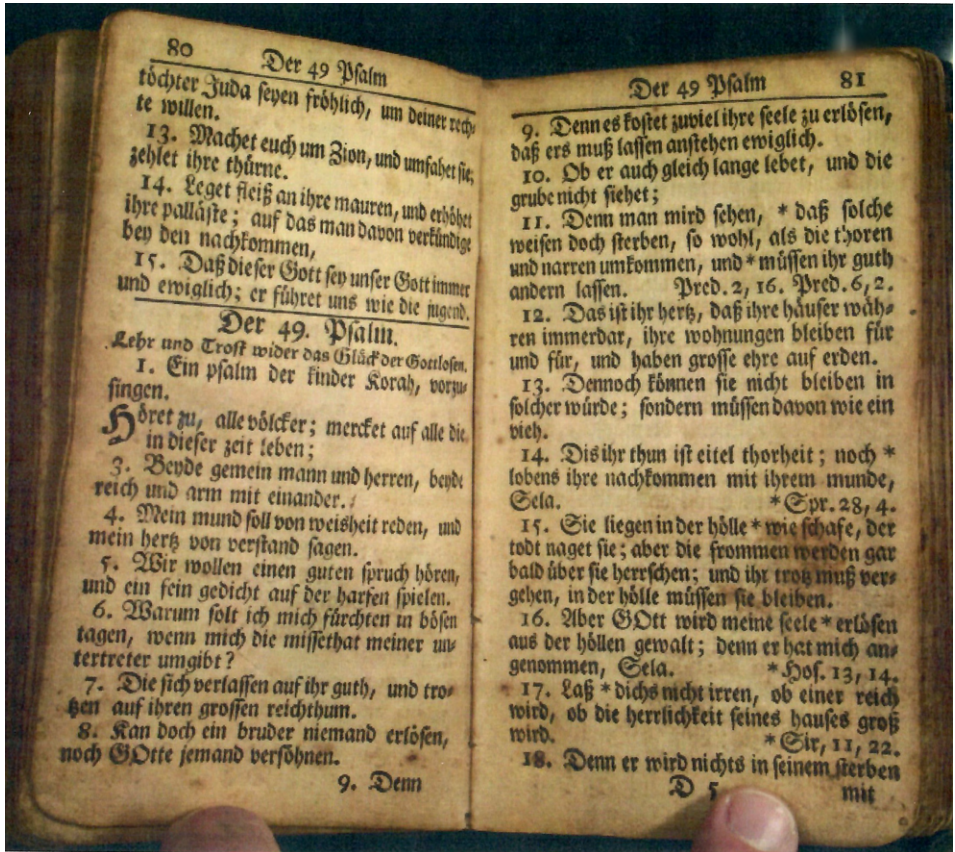 80
Der 49 Psalm
töchter Juda seyen fröhlich, um deiner rech-
te willen.
13. Machet euch um Zion, und umfahet sie;
zehlet ihre thürne.
14. Leget fleiß an ihre mauren, und erhöhet
ihre palläste; auf das man davon verkündige
bey den nachkommen,
15. Daß dieser Gott sey unser Gott immer
und ewiglich; er führet uns wie die jugend.
Der 49. Psalm.
Lehr und Trost wider das Glück der Gottlosen.
1. Ein psalm der kinder Korah, vorzu-
singen.
Höret zu, alle völcker; mercket auf alle die
in dieser zeit leben;
3. Beyde gemein mann und herren, beyde
reich und arm mit einander.
4. Mein mund soll von weisheit reden, und
mein hertz von verstand sagen.
5. Wir wollen einen guten spruch hören,
und ein fein gedicht auf der harfen spielen.
6. Warum solt ich mich fürchten in bösen
tagen, wenn mich die missethat meiner un-
tertreter umgibt?
7. Die sich verlassen auf ihr guth, und tro-
tzen auf ihren grossen reichthum.
8. Kan doch ein bruder niemand erlösen,
noch GOtte jemand versöhnen.
9. Denn
Der 49 Psalm
81
9. Denn es kostet zuviel ihre seele zu erlösen,
daß ers muß lassen anstehen ewiglich.
10. Ob er auch gleich lange lebet, und die
grube nicht siehet;
11. Denn man mird sehen, * daß solche
weisen doch sterben, so wohl, als die thoren
und narren umkommen, und * müssen ihr guth
andern lassen. Pred. 2, 16. Pred. 6, 2.
12. Das ist ihr hertz, daß ihre häuser wäh-
ren immerdar, ihre wohnungen bleiben für
und für, und haben grosse ehre auf erden.
13. Dennoch können sie nicht bleiben in
solcher würde; sondern müssen davon wie ein
vieh.
14. Dis ihr thun ist eitel thorheit; noch *
lobens ihre nachkommen mit ihrem munde,
Sela. * Spr. 28, 4.
15. Sie liegen in der hölle * wie schafe, der
todt naget sie; aber die frommen werden gar
bald über sie herrschen; und ihr trotz muß ver-
gehen, in der hölle müssen sie bleiben.
16. Aber GOtt wird meine seele * erlösen
aus der höllen gewalt; denn er hat mich an-
genommen, Sela. * Hos. 13, 14.
17. Laß * dichs nicht irren, ob einer reich
wird, ob die herrlichkeit seines hauses groß
wird. * Sir, 11, 22.
18. Denn er wird nichts in seinem sterben
D 5 mit